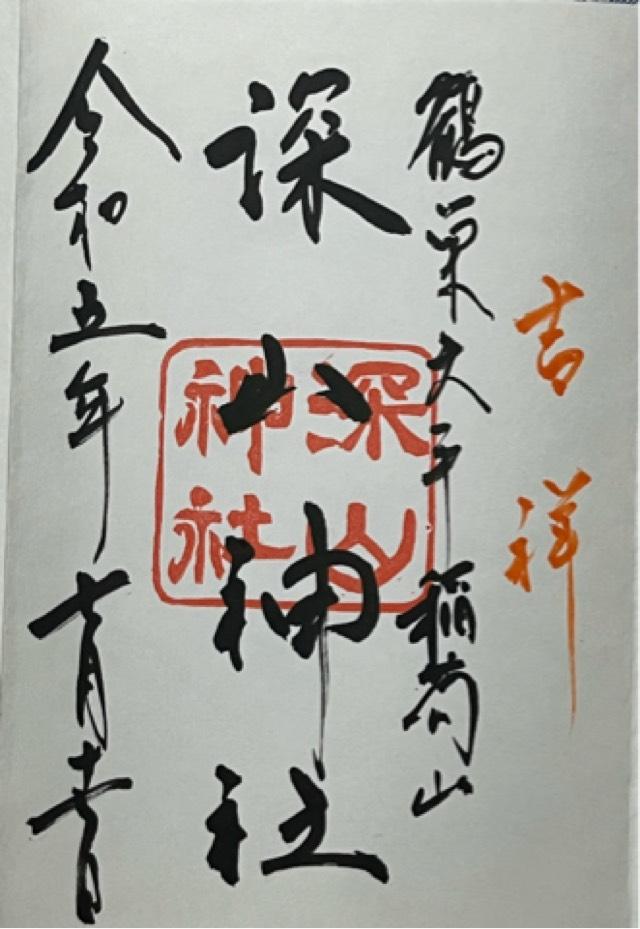 吉祥
鶴巣大平稲荷山
深山神社
深山
神社
令和五年七月十七日